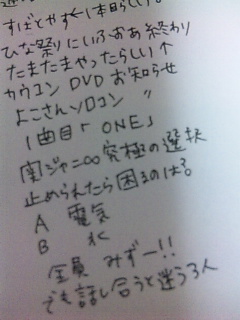 すばとやす←1本目らしい。
ひな祭りにいふおあ終わり
たまたまやったらしい↑
カウコンDVDお知らせ
よこさんソロコン 〃
1曲目「ONE」
関ジャニ∞究極の選択
止められたら困るのは?
A 電気
B 水
全員 みずー!!
でも話し合うと迷う3人